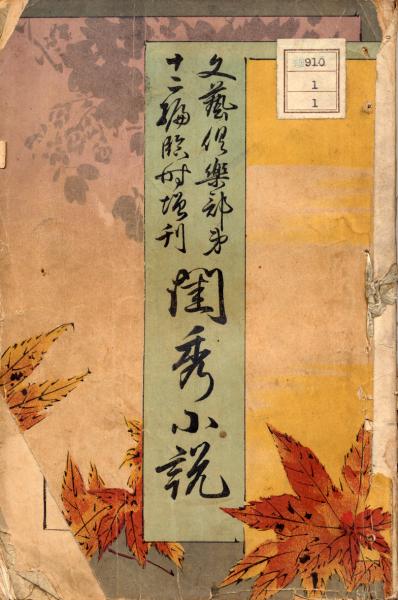 文藝倶樂部第
十二編臨時増刊
閨秀小説
910
1
1